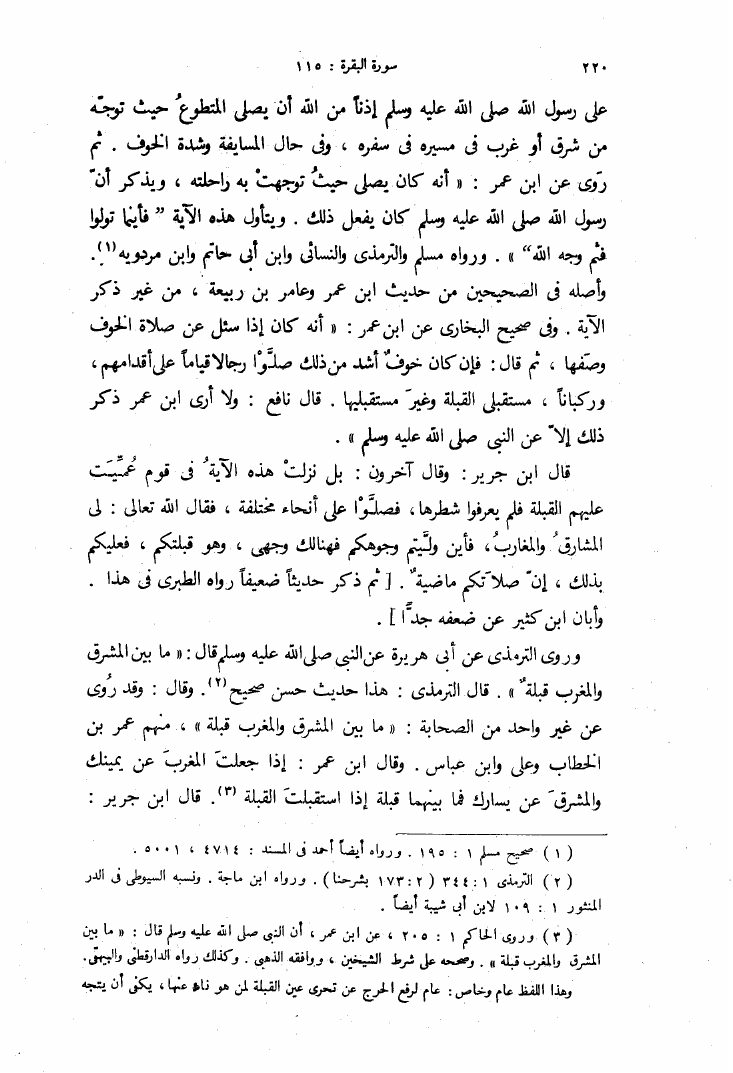 ٢٢٠ سورة البقرة : ١١٥
على رسول الله صلى الله عليه وسلم إذناً من الله أن يصلى المتطوعُ حيث توجّه
من شرق أو غرب فى مسيره فى سفره ، وفى حال المسايفة وشدة الخوف . ثم
رَوى عن ابن عمر : « أنه كان يصلى حيثُ توجهتْ به راحلته ، ويذكر أنّ
رسول الله صلى الله عليه وسلم كان يفعل ذلك . ويتأول هذه الآية ” فأينما تولوا
فثم وجه الله “ » . ورواه مسلم والترمذى والنسائى وابن أبى حاتم وابن مردويه(١).
وأصله فى الصحيحين من حديث ابن عمر وعامر بن ربيعة ، من غير ذكر
الآية . وفى صحيح البخارى عن ابن عمر : « أنه كان إذا سئل عن صلاة الخوف
وصَفها ، ثم قال : فإن كان خوفٌ أشد من ذلك صلَّوْا رجالا قياماً على أقدامهم ،
وركباناً ، مستقبلى القبلة وغيرَ مستقبليها . قال نافع : ولا أرى ابن عمر ذكر
ذلك إلاّ عن النبى صلى الله عليه وسلم » .
قال ابن جرير : وقال آخرون : بل نزلتْ هذه الآيةُ فى قوم عُمِّيَت
عليهم القبلة فلم يعرفوا شطرها ، فصلَّوْا على أنحاء مختلفة ، فقال الله تعالى : لى
المشارقُ والمغاربُ، فأين ولَّيتم وجوهكم فهنالك وجهى ، وهو قبلتكم ، فعليكم
بذلك ، إنّ صلاَتكم ماضيةٌ . [ ثم ذكر حديثاً ضعيفاً رواه الطبرى فى هذا .
وأبان ابن كثير عن ضعفه جدًّا ] .
وروى الترمذى عن أبى هريرة عن النبى صلى الله عليه وسلم قال : « ما بين المشرق
والمغرب قبلةٌ » . قال الترمذى : هذا حديث حسن صحيح(٢). وقال : وقد رُوى
عن غير واحد من الصحابة : « ما بين المشرق والمغرب قبلة » ، منهم عمر بن
الخطاب وعلى وابن عباس . وقال ابن عمر : إذا جعلتَ المغربَ عن يمينك
والمشرقَ عن يسارك فما بينهما قبلة إذا استقبلتَ القبلة (٣). قال ابن جرير :
( ١ ) صحيح مسلم ١ : ١٩٥ . ورواه أيضاً أحمد فى المسند : ٤٧١٤ ، ٥٠٠١ .
( ٢ ) الترمذى ١ : ٣٤٤ ( ٢ : ١٧٣ بشرحنا ) . ورواه ابن ماجة . ونسبه السيوطى فى الدر
المنثور ١ : ١٠٩ لابن أبى شيبة أيضاً .
( ٣ ) وروى الحاكم ١ : ٢٠٥ ، عن ابن عمر ، أن النبى صلى الله عليه وسلم قال : « ما بين
المشرق والمغرب قبلة » . وصححه على شرط الشيخين ، ووافقه الذهبى . وكذلك رواه الدارقطنى والبيهقى.
وهذا اللفظ عام وخاص : عام لرفع الحرج عن تحرى عين القبلة لمن هو ناء عنها ، يكفى أن يتجه